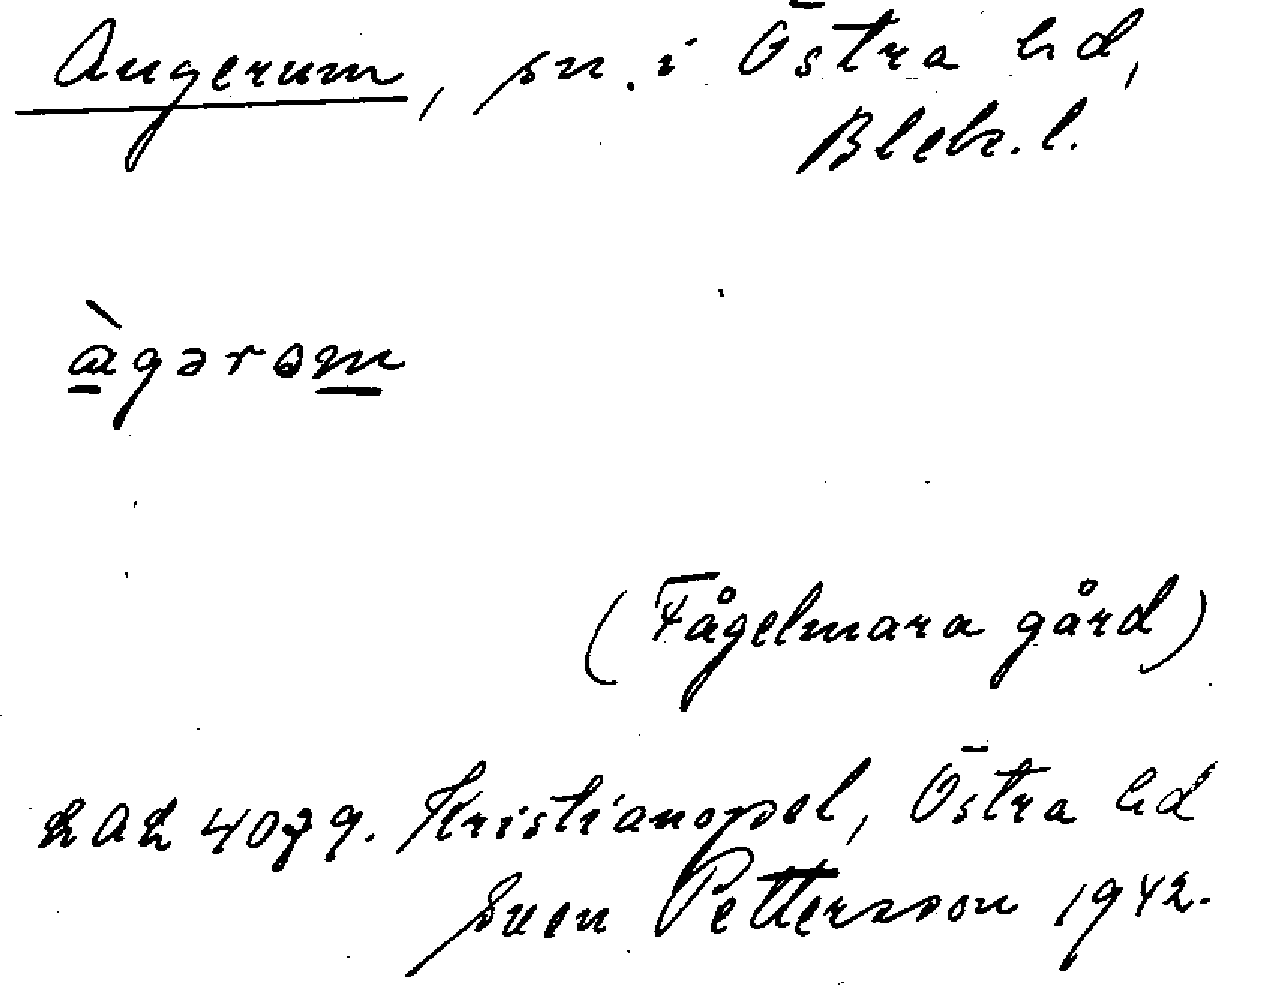 Augerum, sn. i Östra hd,
Blek. l.
à̱gərɵm̱
(Fågelmara gård)
LAL 4079. Kristianopel, Östra hd
Sven Pettersson 1942.